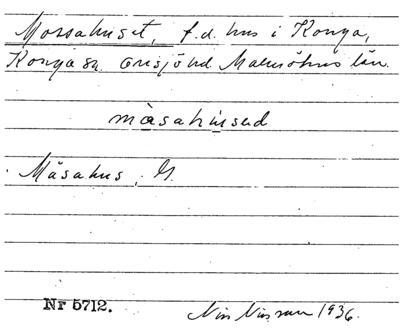 Mossahuset, f.d. hus i Konga,
Konga sn. Onsjö hd Malmöhus län.
måsahussed
Måsahus, G.
Nr 5712.
Nils Nilsson 1936.